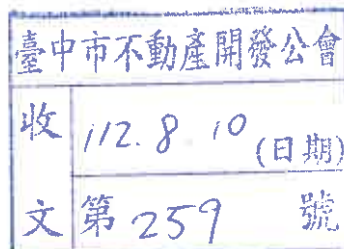 臺中市不動產開發公會
收 112.8.10(日期)
文 第259號